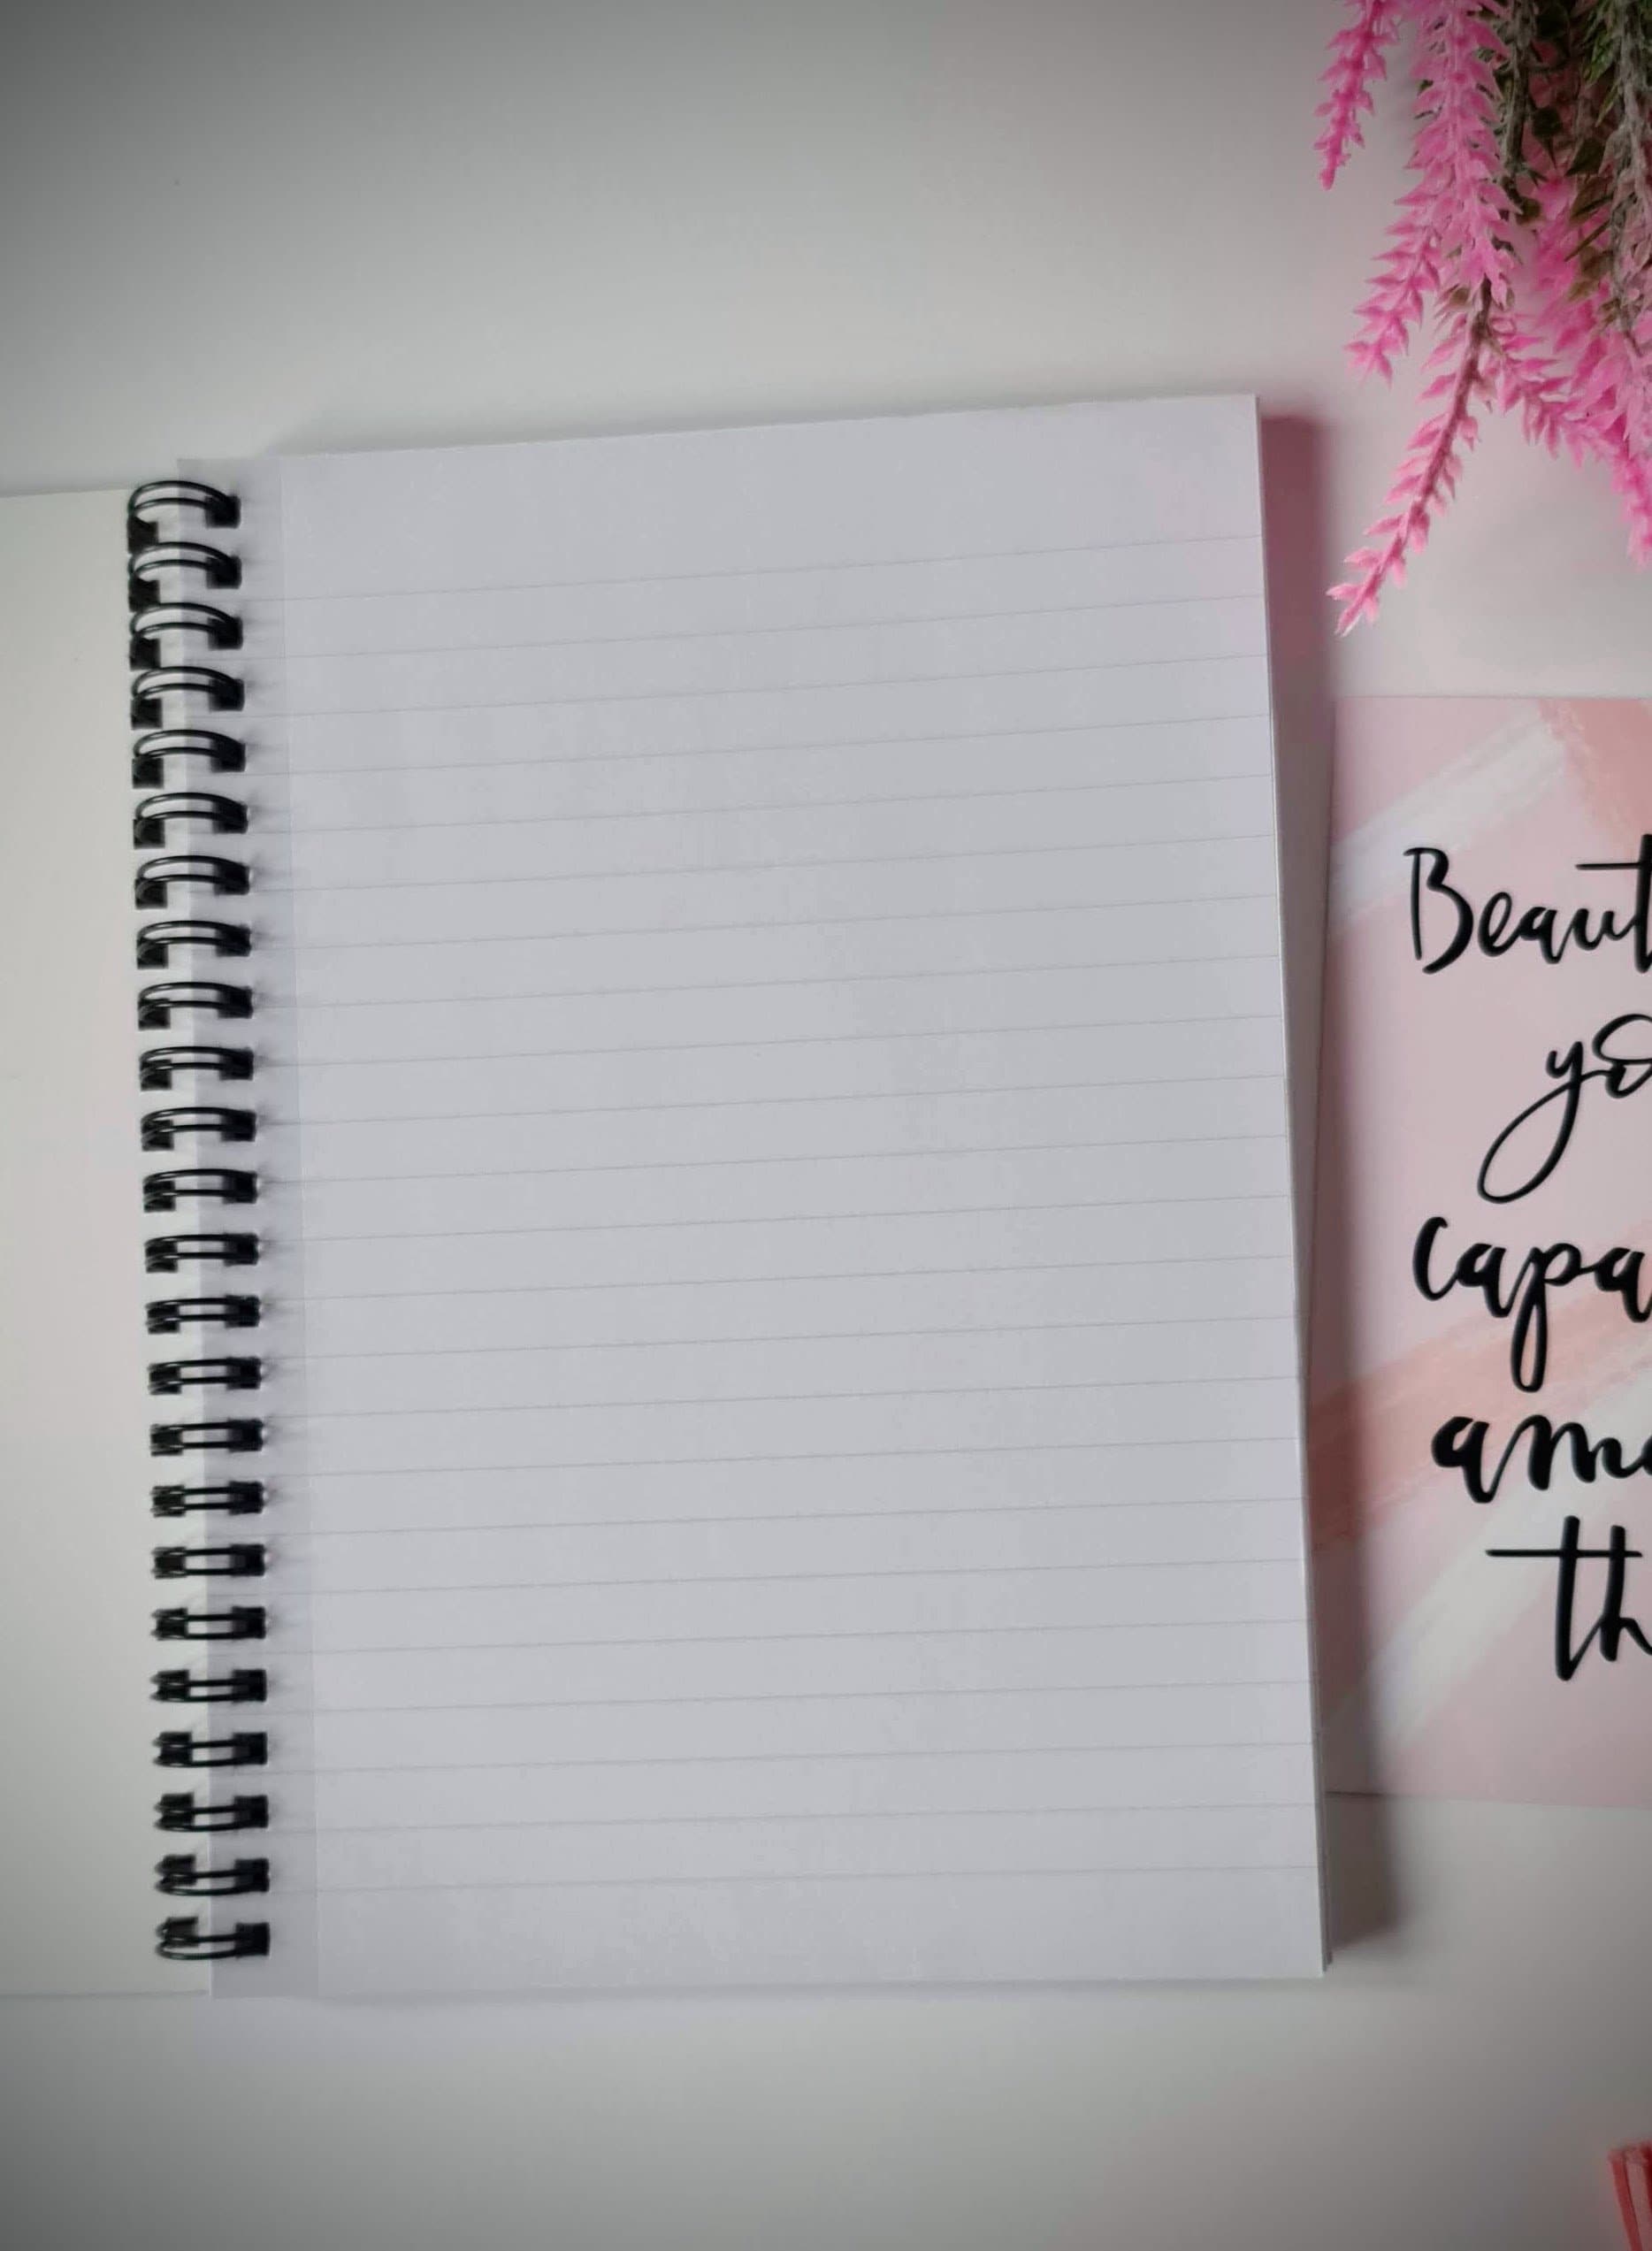 Beaut
yo
capa
ama
th